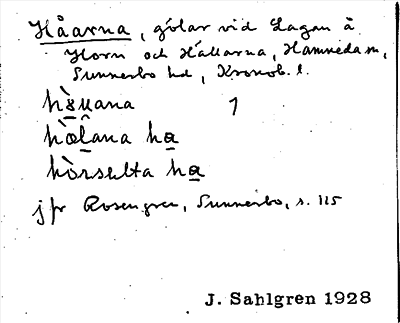 Håarna, gölar vid Lagan å
Horn och Hållarna, Hamneda sn,
Sunnerbo hd, Kronob. l.
1
hæ̀lana ha
hòrsulta ha
jfr Rosengren, Sunnerbo, s. 115
J. Sahlgren 1928